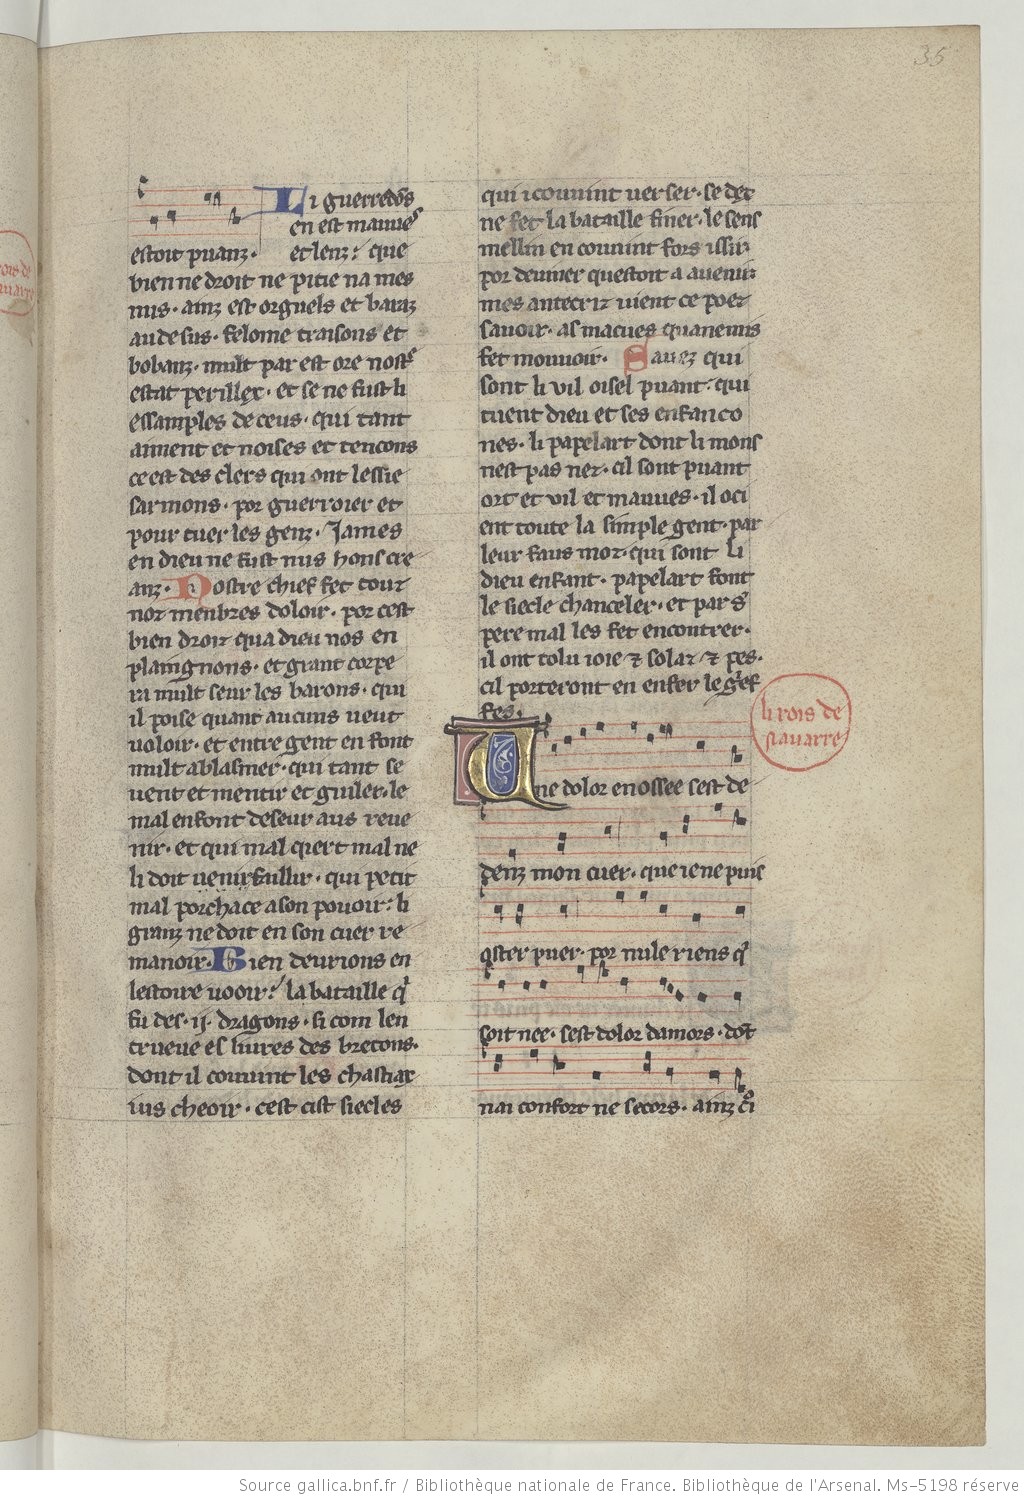 35
Li guerredõs
en est mauves
estoit puanz. et lenz. que
bien ne droit ne pitie na mes
mis. ainz est orguels et baraz
au desus. felonie traisons et
bobanz. mult par est ore nostre
estat perillex. et se ne fust li
essamples de ceus. qui tant
aiment et noises et tencons
ce est des clers qui ont lessie
sarmons. por guerroier et
pour tuer les genz. James
en dieu ne fust nus hons cre
anz. Nostre chief fet touz
noz menbres doloir. por cest
bien droiz qua dieu nos en
plaingnons. et grant corpe
ra mult seur les barons. qui
il poise quant aucuns veut
valoir. et entre gent en font
mult a blasmer. qui tant se
vent et mentir et guiler. le
mal en font deseur aus reve
nir. et qui mal quiert mal ne
li doit venir faillir. qui petit
mal porchace a son pouoir. li
granz ne doit en son cuer re
manoir. Bien devrions en
lestoire vooir. la bataille q
fu des .ii. dragons. si com len
trueve es livres des bretons.
dont il couvint les chastiax
ius cheoir. cest cist siecles
qui i couvint verser. se dex
ne fet la bataille finer. le sens
mellin en couvint fors issir
por deviner questoit a avenir
mes antecriz vient ce poez
savoir. as macues quanemis
fet mouvoir. Savez qui
sont li vil oisel puant. qui
tuent dieu et ses enfanco
nes. li papelart dont li mons
nest pas nez. cil sont puant
ort et vil et mauves. il oci
ent toute la simple gent. par
leur faus moz. qui sont li
dieu enfant. papelart font
le siecle chanceler. et par s
pere mal les fet encontrer.
il ont tolu ioie ⁊ solaz ⁊ pes.
cil porteront en enfer le gref
fes.
li rois de
navarre
Une dolor enossee sest de
denz mon cuer. que ie ne puis
oster puer. por nule riens q
soit nee. sest dolor damors. dõt
nai confort ne secors. ainz
Source gallica.bnf.fr / Bibliothèque nationale de France. Bibliothèque de l'Arsenal. Ms-5198 réserve